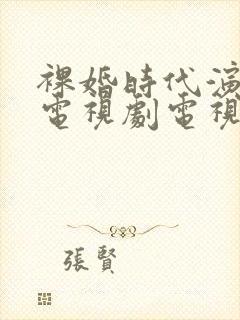 裸婚時代演
電視劇電視
張賢